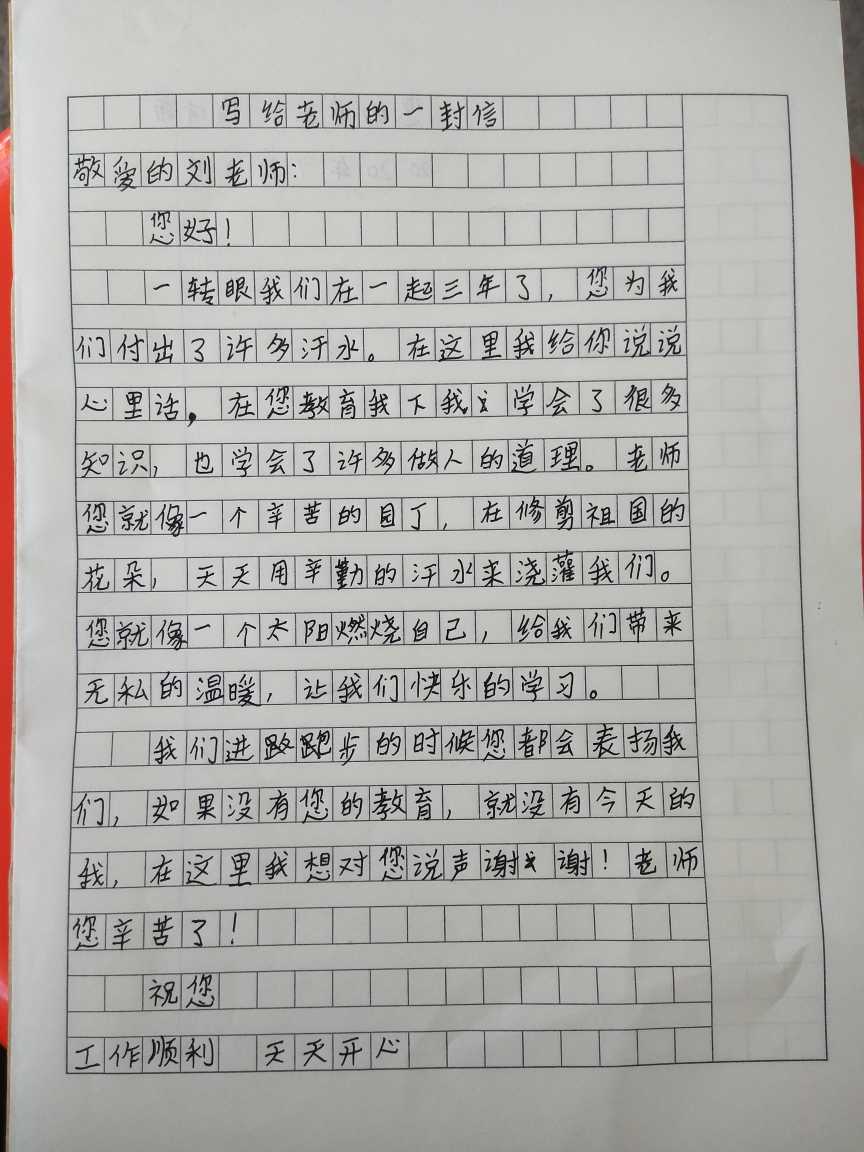 写给老师的一封信
敬爱的刘老师：
您好！
一转眼我们在一起三年了，您为我
们付出了许多汗水。在这里我给你说说
心里话，在您教育我下我学会了很多
知识，也学会了许多做人的道理。老师
您就像一个辛苦的园丁，在修剪祖国的
花朵，天天用辛勤的汗水来浇灌我们。
您就像一个太阳燃烧自己，给我们带来
无私的温暖，让我们快乐的学习。
我们进跑步的时候您都会表扬我
们，如果没有您的教育，就没有今天的
我，在这里我想对您说声谢谢！老师
您辛苦了！
祝您
工作顺利 天天开心